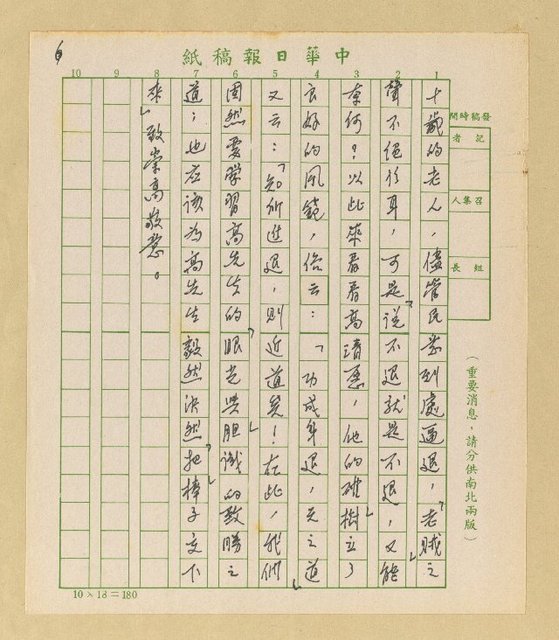 中華日報稿紙
6
1 2 3 4 5 6 7 8 9 10
發稿時間
記者
召集人
組長
（重要消息，請分供南北兩版）
十歲的老人，儘管民意到處逼退，「老賊之
聲不絕於耳，可是說「不退就是不退，又能
奈何？」以此來看看高清愿，他的確樹立了
良好的風範，俗云：「功成身退，天之道」
又云：「知所進退，則近道矣！在此，我們
固然要學習高先生的「眼光與胆識」的致勝之
道；也应該為高先生毅然決然「把棒子交下
來」致崇高敬意。
10×18＝180